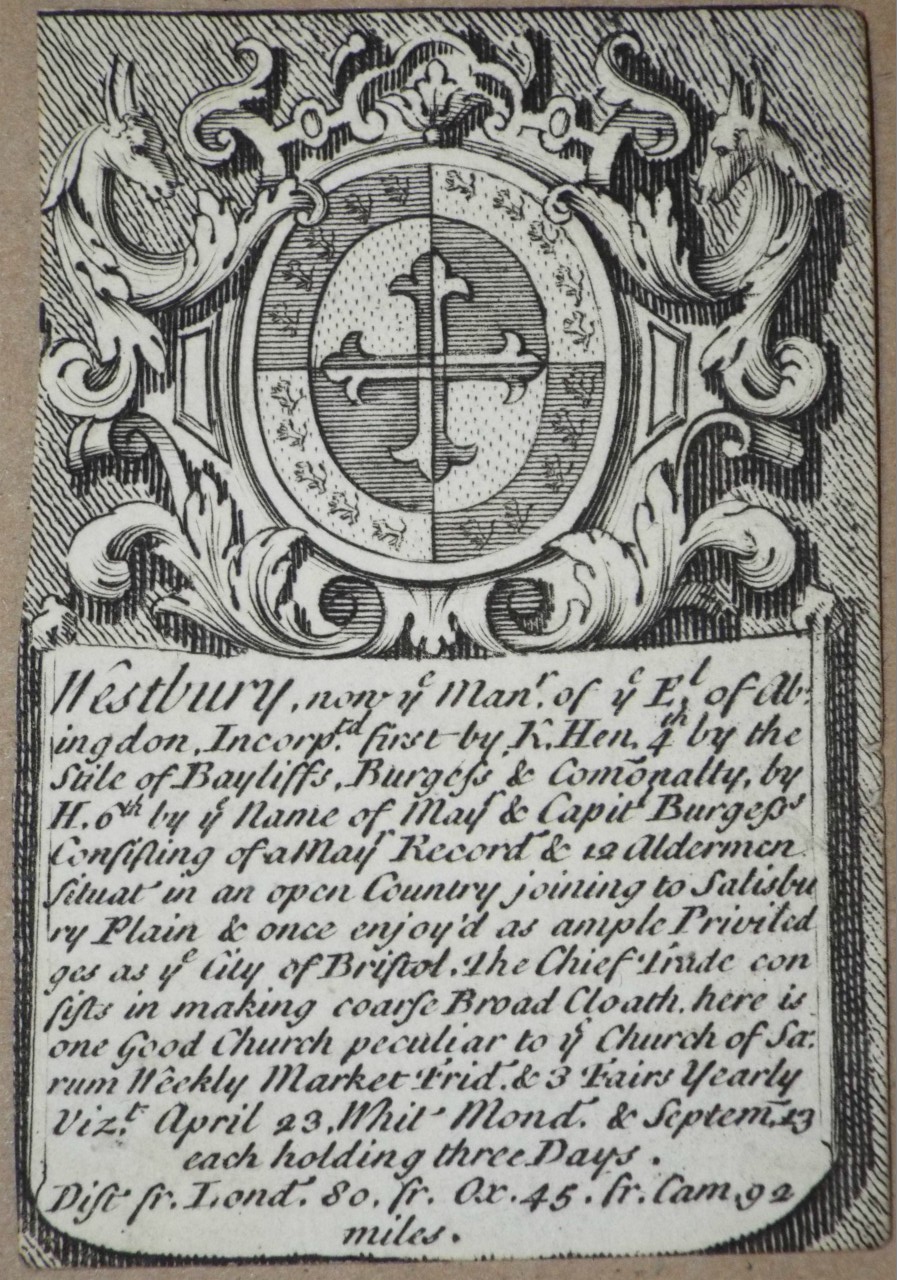 Westbury, now yᵉ Manʳ. of yᵉ Eˡ. of Ab:
ingdon, Incorpʳᵗᵈ first by K. Hen. 4ᵗʰ by the
Stile of Bayliffs, Burgeſs & Com̃onalty, by
H. 6ᵗʰ by yᵉ Name of Mayʳ & Capitˡ Burgeſsˢ
Conſiſting of a Mayʳ Recordʳ & 12 Aldermen
ſituat in an open Country joining to Salisbu
ry Plain & once enjoy'd as ample Priviled
ges as yᵉ City of Briſtol. The Chief Trade con
ſiſts in making coarſe Broad Cloath. here is
one Good Church peculiar to yᵉ Church of Sa:
rum Weekly Market Frid. & 3 Fairs Yearly
Vizᵗ. April 23, Whit Mond. & Septem. 13
each holding three Days.
Diſt fr. Lond. 80. fr. Ox. 45. fr. Cam. 92
miles.